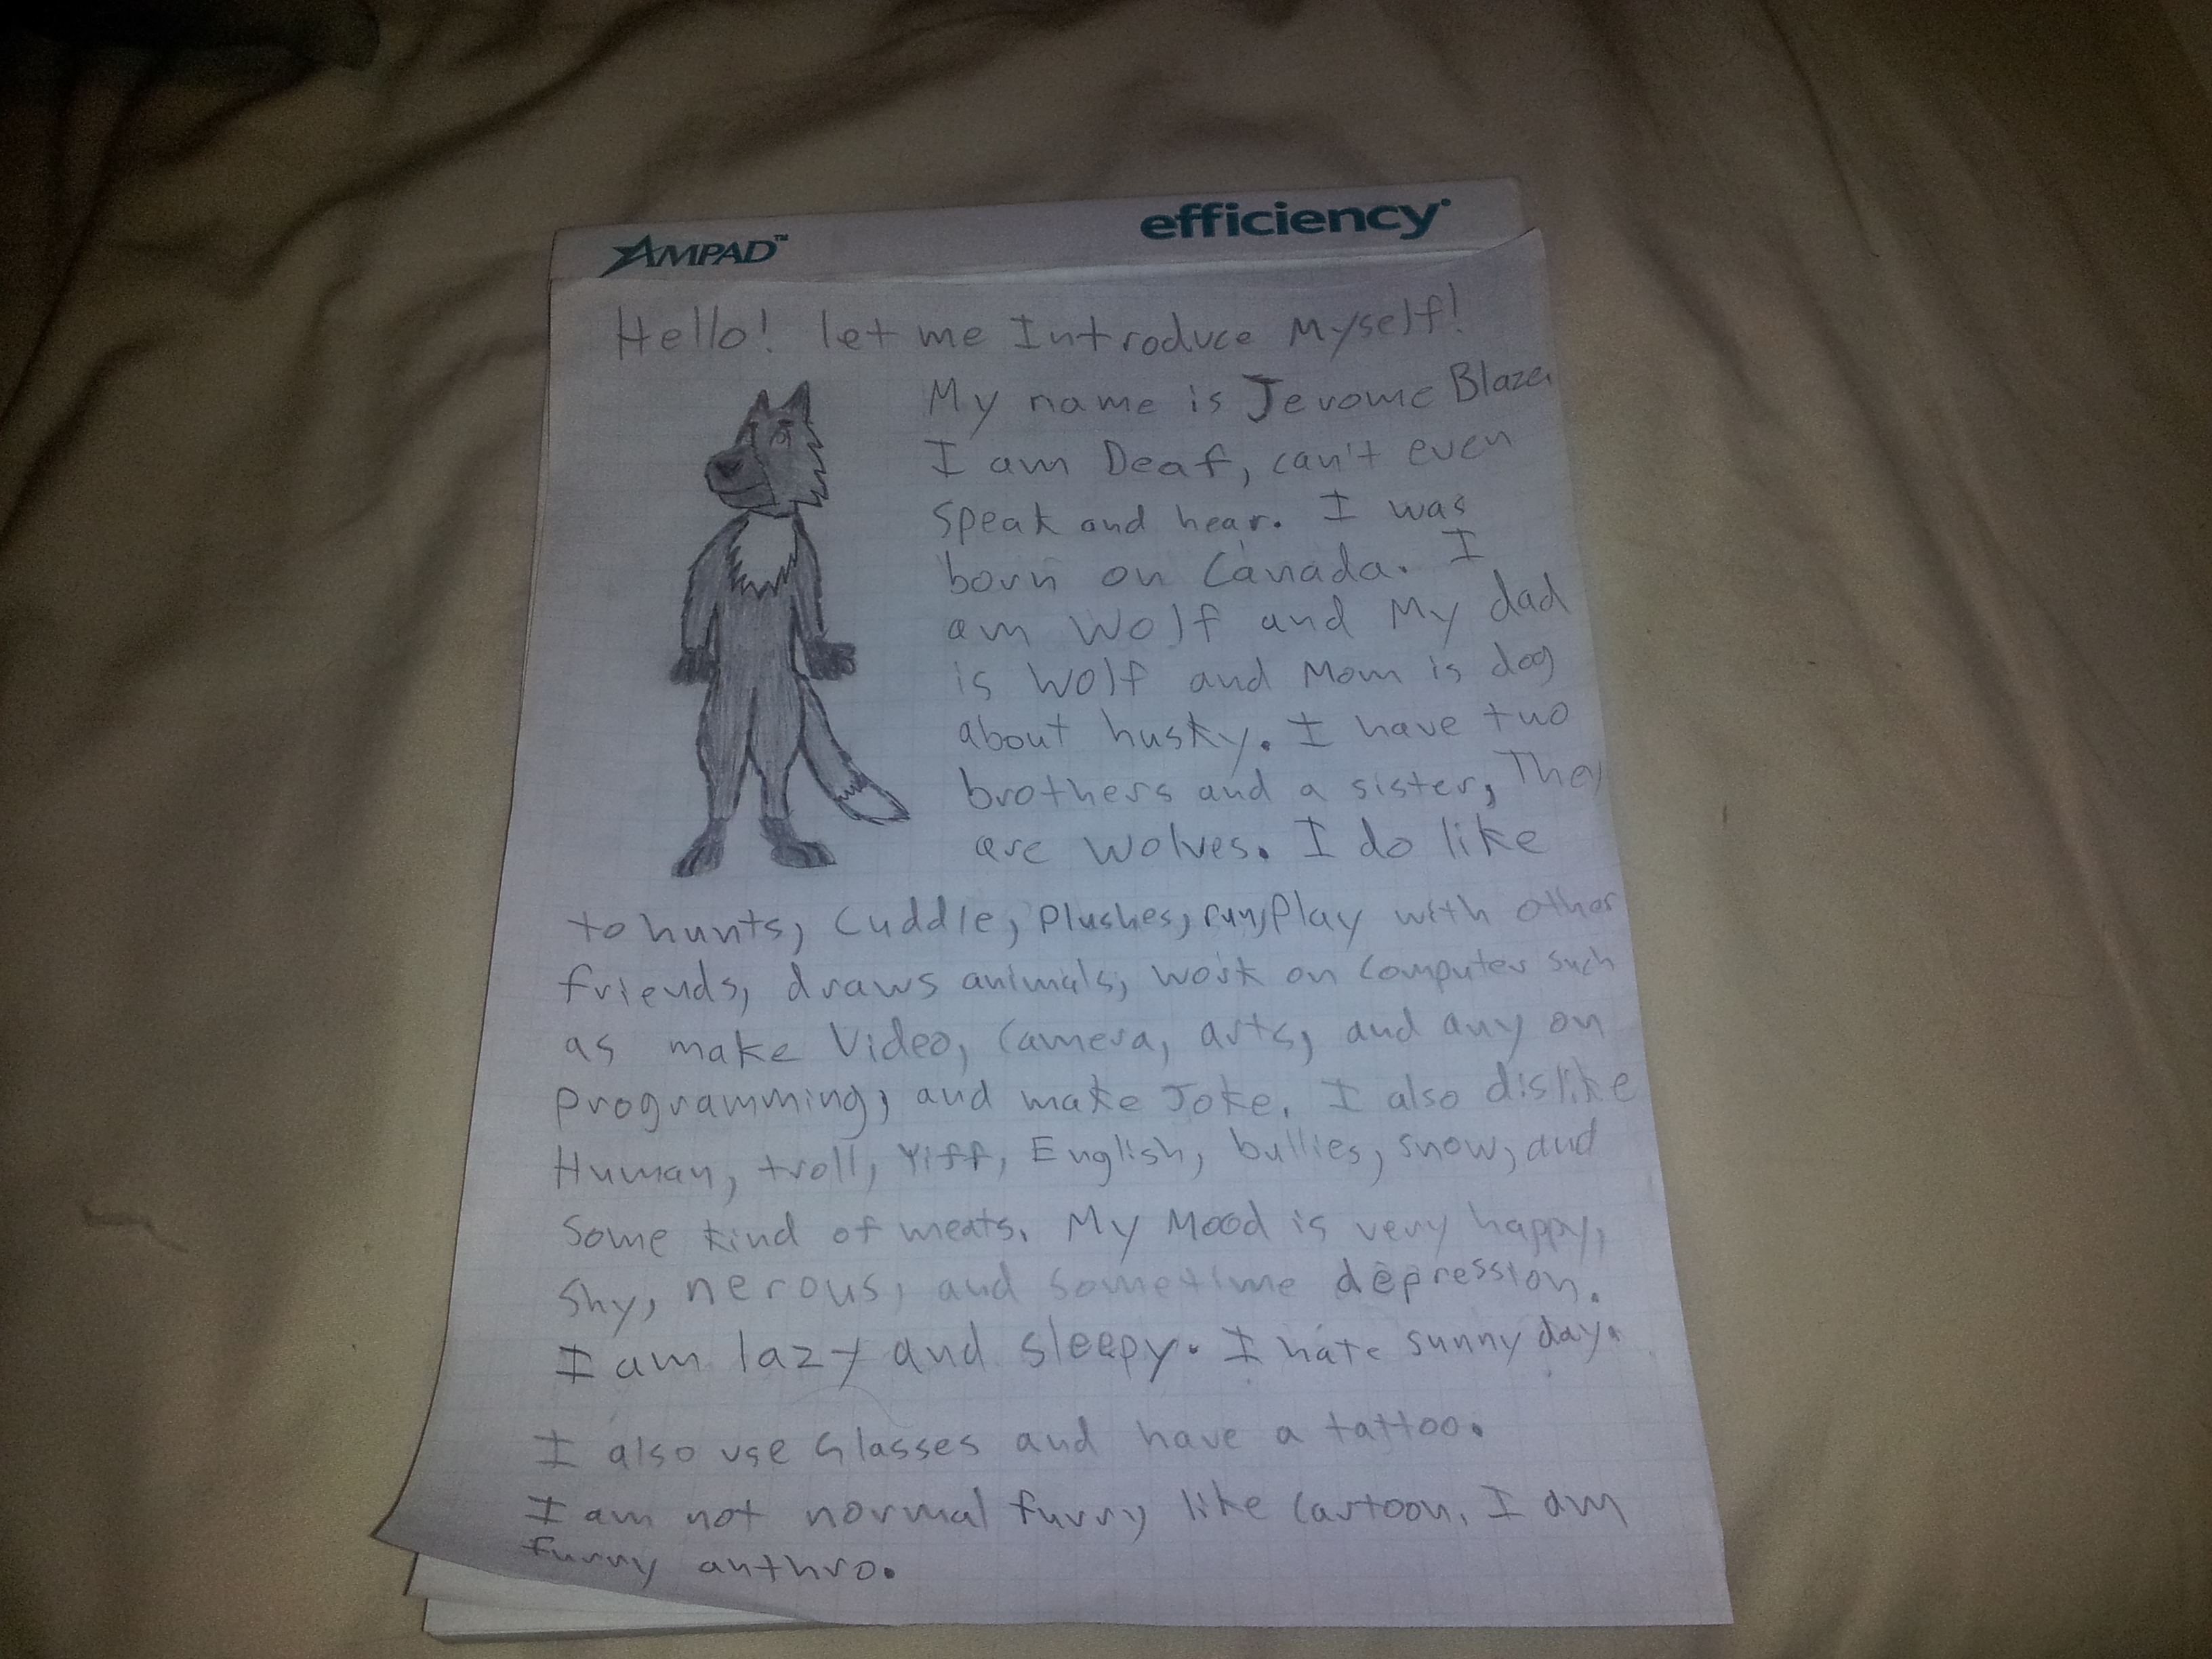 AMPAD™ efficiency®
Hello! let me Introduce Myself!
My name is Jerome Blaze.
I am Deaf, can't even
speak and hear. I was
born on Canada. I
am Wolf and My dad
is Wolf and Mom is dog
about husky. I have two
brothers and a sister, They
are Wolves. I do like
to hunts, Cuddle, Plushes, run, Play with other
friends, draws animals, work on Computer such
as make Video, Camera, arts, and any on
Programming, and make Joke. I also dislike
Human, troll, Yiff, English, bullies, snow, and
Some kind of meats. My Mood is very happy,
Shy, nerous, and sometime depression.
I am lazy and sleepy. I hate sunny day.
I also use Glasses and have a tattoo.
I am not normal furry like Cartoon. I am
furry anthro.